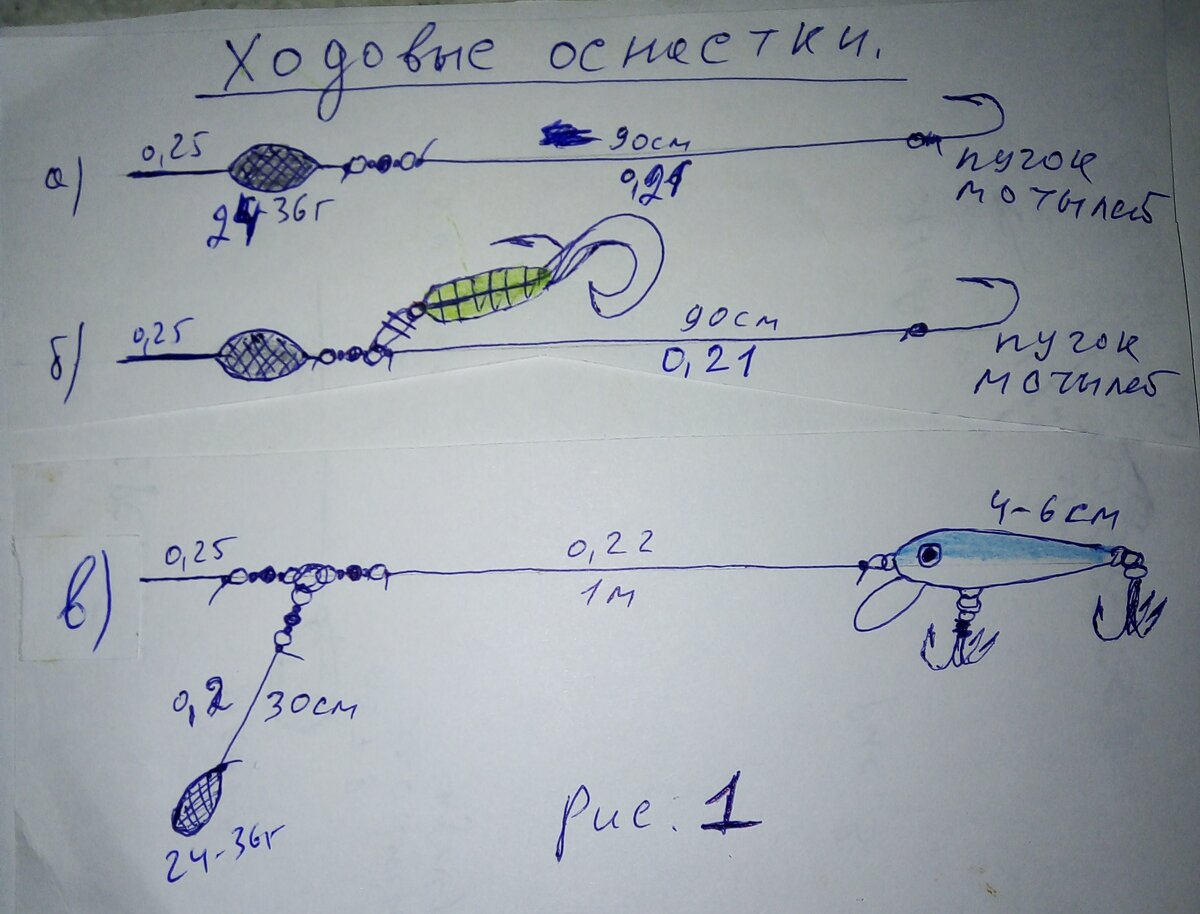 Ходовые оснастки.
а)
0,25
24-36г
90см
0,21
пучок
мотылей
б)
0,25
90см
0,21
пучок
мотылей
в)
0,25
0,22
1м
4-6см
0,2
30см
24-36г
рис. 1